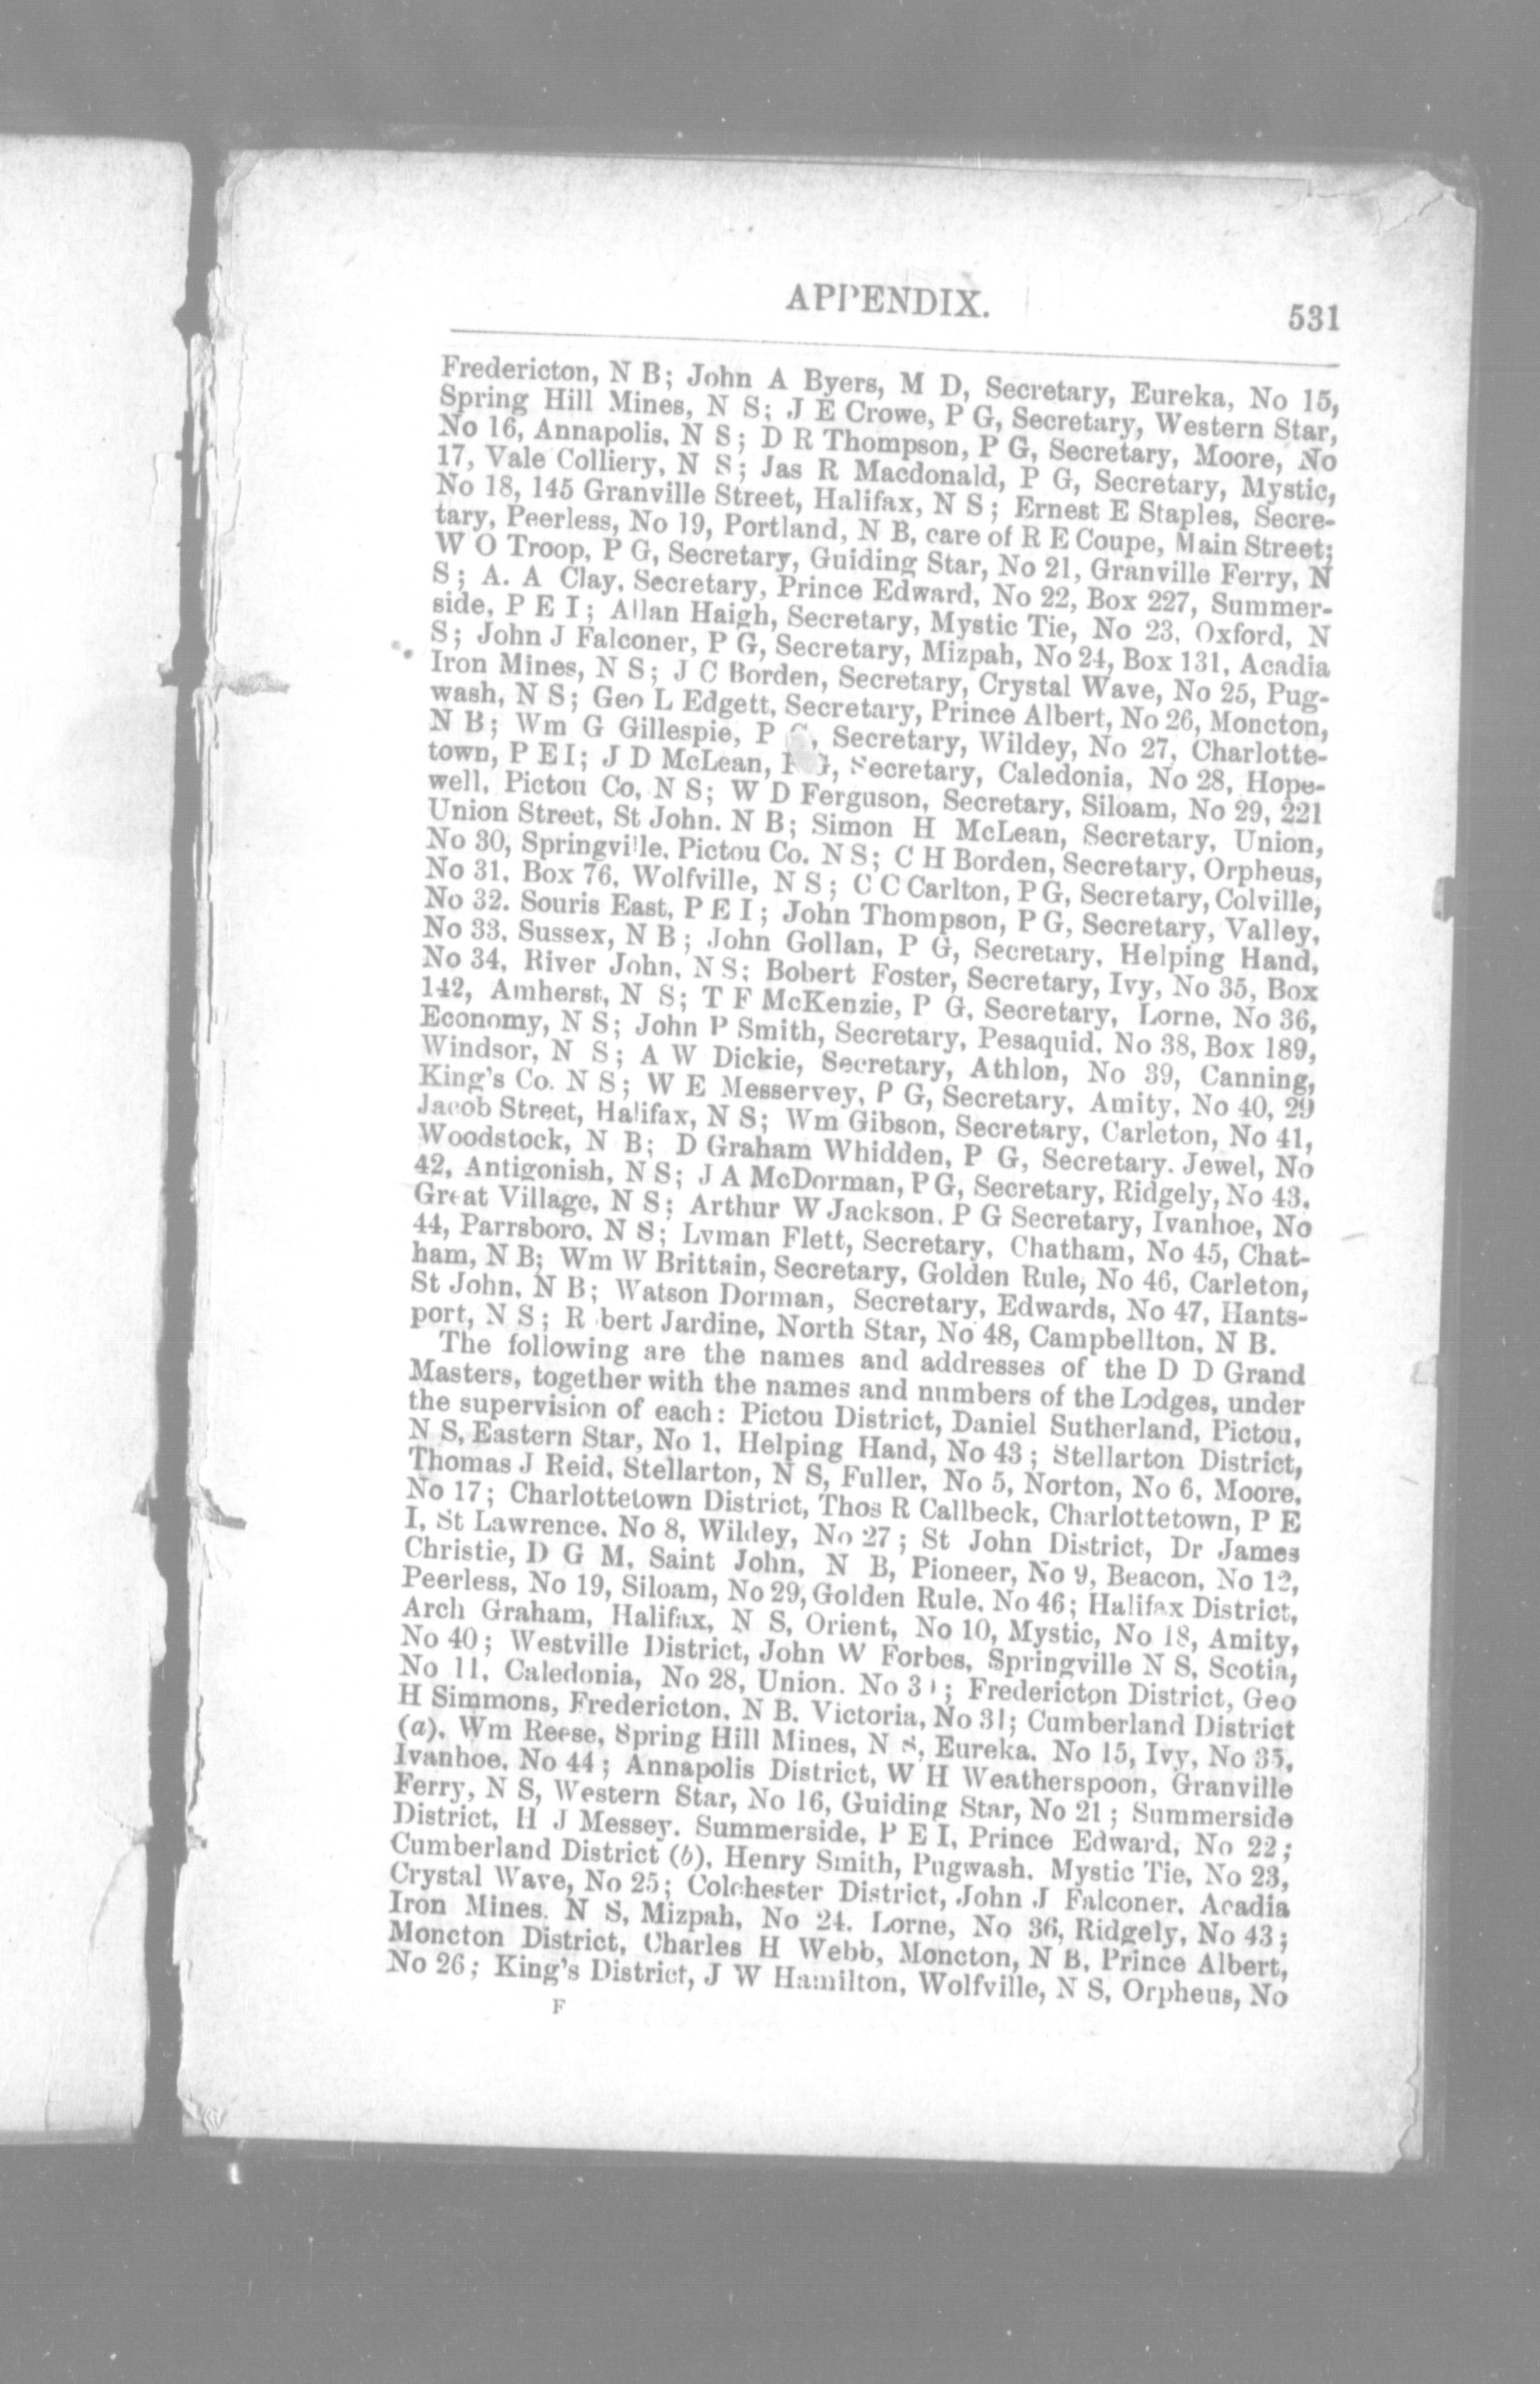 APPENDIX.
531
Fredericton, N B; John A Byers, M D, Secretary, Eureka, No 15,
Spring Hill Mines, N S; J E Crowe, P G, Secretary, Western Star,
No 16, Annapolis, N S; D R Thompson, P G, Secretary, Moore, No
17, Vale Colliery, N S; Jas R Macdonald, P G, Secretary, Mystic,
No 18, 145 Granville Street, Halifax, N S; Ernest E Staples, Secre-
tary, Peerless, No 19, Portland, N B, care of R E Coupe, Main Street;
W O Troop, P G, Secretary, Guiding Star, No 21, Granville Ferry, N
S; A. A Clay, Secretary, Prince Edward, No 22, Box 227, Summer-
side, P E I; Allan Haigh, Secretary, Mystic Tie, No 23, Oxford, N
S; John J Falconer, P G, Secretary, Mizpah, No 24, Box 131, Acadia
Iron Mines, N S; J C Borden, Secretary, Crystal Wave, No 25, Pug-
wash, N S; Geo L Edgett, Secretary, Prince Albert, No 26, Moncton,
N B; Wm G Gillespie, P , Secretary, Wildey, No 27, Charlotte-
town, P E I; J D McLean, G, Secretary, Caledonia, No 28, Hope-
well, Pictou Co, N S; W D Ferguson, Secretary, Siloam, No 29, 221
Union Street, St John. N B; Simon H McLean, Secretary, Union,
No 30, Springville, Pictou Co. N S; C H Borden, Secretary, Orpheus,
No 31, Box 76, Wolfville, N S; C C Carlton, P G, Secretary, Colville,
No 32. Souris East, P E I; John Thompson, P G, Secretary, Valley,
No 33, Sussex, N B; John Gollan, P G, Secretary, Helping Hand,
No 34, River John, N S; Bobert Foster, Secretary, Ivy, No 35, Box
142, Amherst, N S; T F McKenzie, P G, Secretary, Lorne, No 36,
Economy, N S; John P Smith, Secretary, Pesaquid, No 38, Box 189,
Windsor, N S; A W Dickie, Secretary, Athlon, No 39, Canning,
King's Co. N S; W E Messervey, P G, Secretary, Amity, No 40, 29
Jacob Street, Halifax, N S; Wm Gibson, Secretary, Carleton, No 41,
Woodstock, N B; D Graham Whidden, P G, Secretary. Jewel, No
42, Antigonish, N S; J A McDorman, P G, Secretary, Ridgely, No 43,
Great Village, N S; Arthur W Jackson, P G Secretary, Ivanhoe, No
44, Parrsboro, N S; Lyman Flett, Secretary, Chatham, No 45, Chat-
ham, N B; Wm W Brittain, Secretary, Golden Rule, No 46, Carleton,
St John, N B; Watson Dorman, Secretary, Edwards, No 47, Hants-
port, N S; R bert Jardine, North Star, No 48, Campbellton, N B.
The following are the names and addresses of the D D Grand
Masters, together with the names and numbers of the Lodges, under
the supervision of each: Pictou District, Daniel Sutherland, Pictou,
N S, Eastern Star, No 1, Helping Hand, No 43; Stellarton District,
Thomas J Reid, Stellarton, N S, Fuller, No 5, Norton, No 6, Moore,
No 17; Charlottetown District, Thos R Callbeck, Charlottetown, P E
I, St Lawrence, No 8, Wildey, No 27; St John District, Dr James
Christie, D G M, Saint John, N B, Pioneer, No 9, Beacon, No 12,
Peerless, No 19, Siloam, No 29, Golden Rule, No 46; Halifax District,
Arch Graham, Halifax, N S, Orient, No 10, Mystic, No 18, Amity,
No 40; Westville District, John W Forbes, Springville N S, Scotia,
No 11, Caledonia, No 28, Union. No 30; Fredericton District, Geo
H Simmons, Fredericton, N B. Victoria, No 31; Cumberland District
(a), Wm Reese, Spring Hill Mines, N S, Eureka, No 15, Ivy, No 35,
Ivanhoe, No 44; Annapolis District, W H Weatherspoon, Granville
Ferry, N S, Western Star, No 16, Guiding Star, No 21; Summerside
District, H J Messey. Summerside, P E I, Prince Edward, No 22;
Cumberland District (b), Henry Smith, Pugwash, Mystic Tie, No 23,
Crystal Wave, No 25; Colchester District, John J Falconer, Acadia
Iron Mines. N S, Mizpah, No 24. Lorne, No 36, Ridgely, No 43;
Moncton District, Charles H Webb, Moncton, N B, Prince Albert,
No 26; King's District, J W Hamilton, Wolfville, N S, Orpheus, No
F